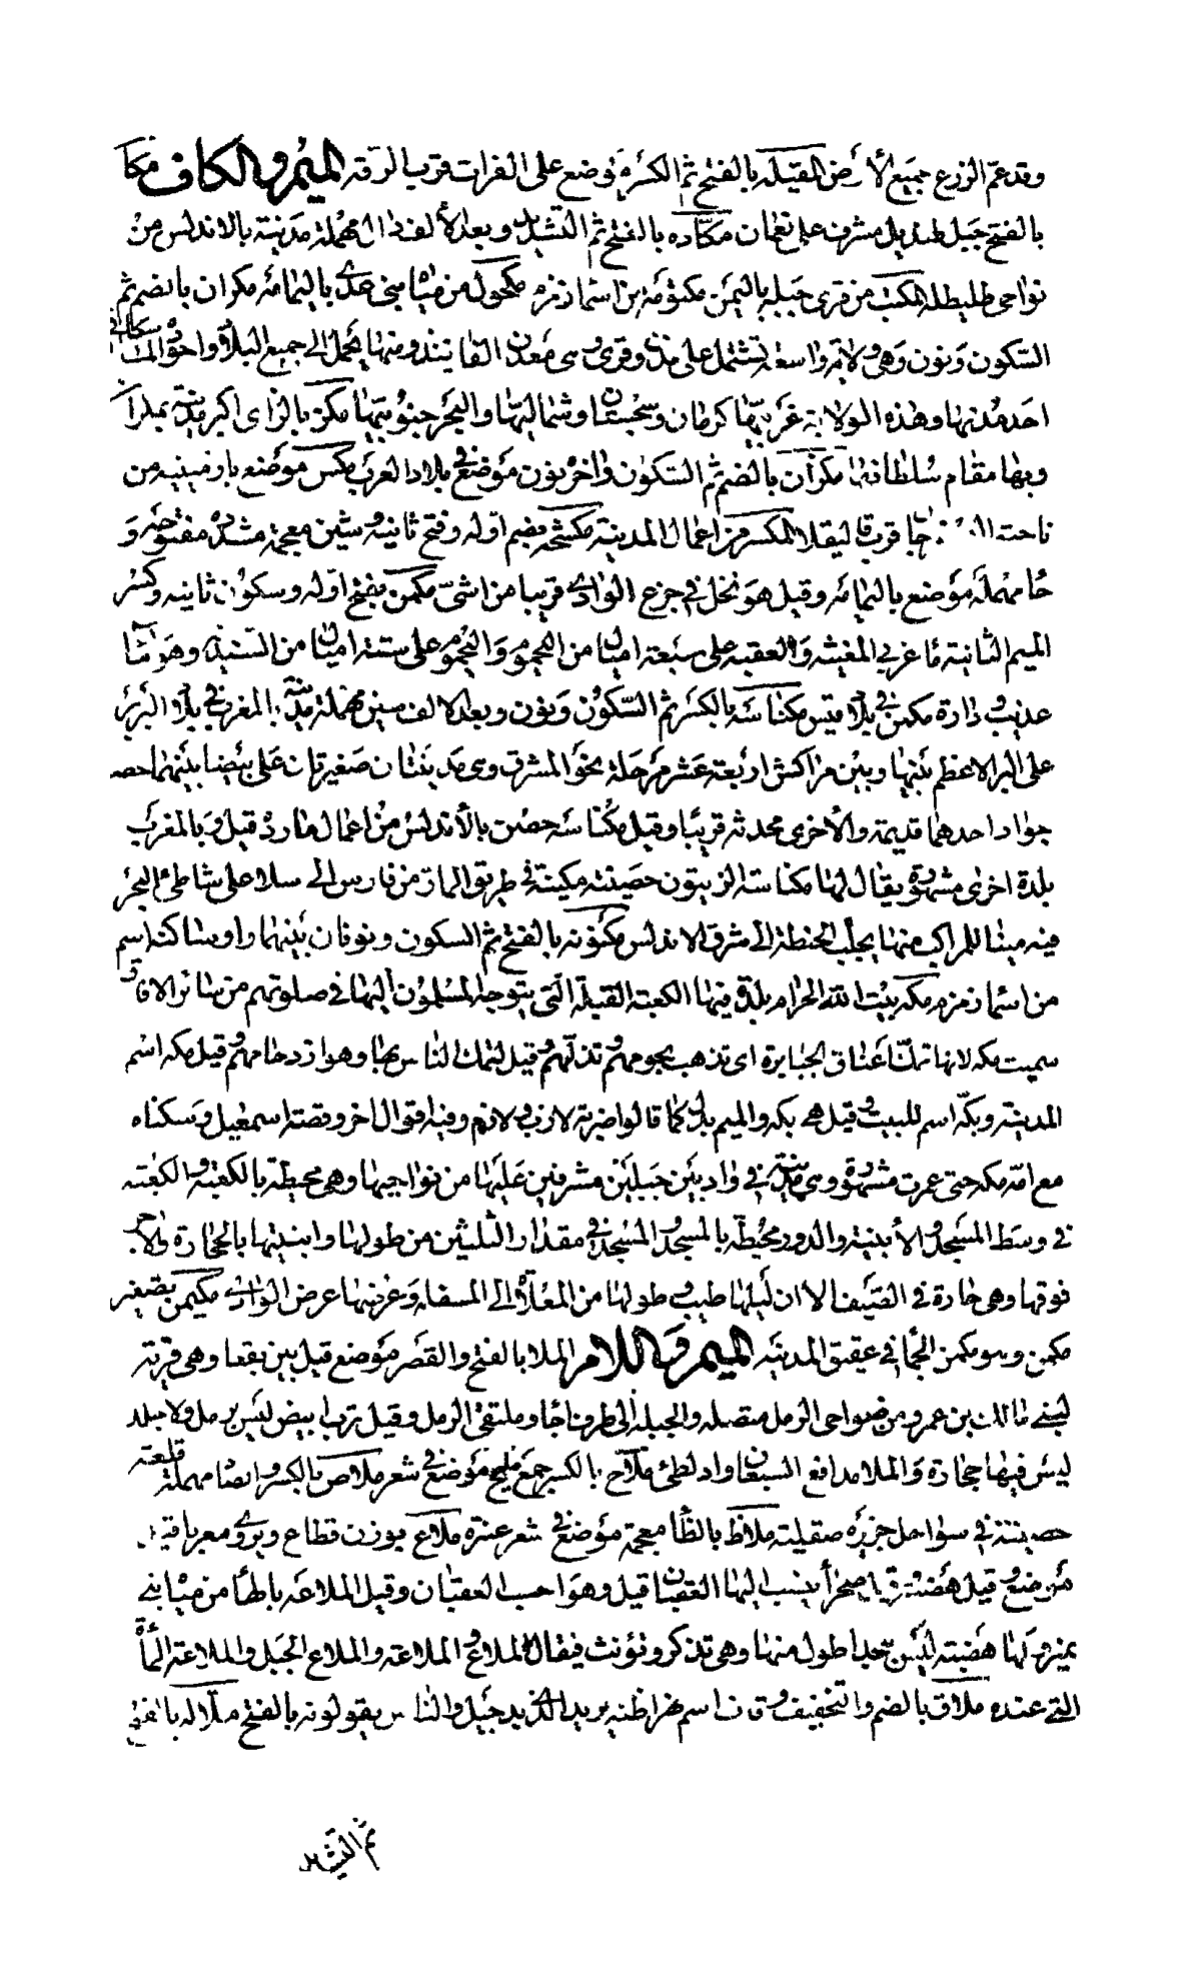 وقد عم الزرع جميع الأرض المقيله بالفتح ثم الكسر موضع على الفرات قرب الرقه الميم والكاف مكا
بالفتح جبل لهذيل مشرف على نعمان مكاده بالفتح ثم التشديد وبعد الألف دال مهملة مدينة بالاندلس من
نواحي طليطله المكتب من قرى جبله باليمن مكتومه من اسما زمزم مكحول من مياه بني عدي باليمامه مكران بالضم ثم
السكون ونون وهي ولاية واسعة تشتمل على مدن وقرى وهي معدن الفانيذ ومنها يحمل الى جميع البلاد واجوده الماسكاني
احد مدنها وهذه الولاية غربيها كرمان وسجستان وشماليها والبحر جنوبيها مكز بالزاى اكبر مدينة بمكران
وبها مقام سلطانها مكران بالضم ثم السكون واخره نون موضع في بلاد العرب مكس موضع بارمينيه من
ناحية قرب قاليقلا المكسر من اعمال المدينة مكشحه بضم اوله وفتح ثانيه وشين معجمة مشددة مفتوحه و
حا مهملة موضع باليمامه وقيل هو نخل في جزع الوادي قريبا من اشي مكمن بفتح اوله وسكون ثانيه وكسر
الميم الثانية ما غربي المغيثه والعقبه على سبعة اميال من اليحموم واليحموم على ستة اميال من السنديه وهو ما
عذب ودارة مكمن في بلاد قيس مكناسه بالكسر ثم السكون ونون وبعد الالف سين مهملة مدينة بالمغرب في بلاد البربر
على البر الاعظم بينها وبين مراكش اربعة عشر مرحلة نحو المشرق وهي مدينتان صغيرتان على بيضا بينهما حصن
جواد احدهما قديمة والأخرى محدثه قريبا وقيل مكناسه حصن بالأندلس من اعمال مارده قيل وبالمغرب
بلدة اخرى مشهورة يقال لها مكناسة الزيتون حصينة مكينة في طريق المار من فارس الى سلا على شاطئ البحر
فيه مينا للمراكب منها يجلب الحنطة الى شرق الاندلس مكنونه بالفتح ثم السكون ونونان بينهما واو ساكنة اسم
من اسما زمزم مكه بيت الله الحرام بلد فيها الكعبة القبلة التي يتوجه المسلمون اليها في صلوتهم من سائر الافاق
سميت مكه لانها تمك اعناق الجبابرة اى تذهب بنحوتهم وتذلهم وقيل لتمك الناس بها وهو ازدحامهم وقيل مكه اسم
المدينة وبكة اسم للبيت وقيل هي بكه والميم بدل كما قالوا ضربة لازب ولازم وفيه اقوال اخر وقصة اسمعيل وسكناه
مع امه مكه حتى عمرت مشهورة وهي مدينة في واد بين جبلين مشرفين عليها من نواحيها وهي محيطة بالكعبه والكعبة
في وسط المسجد والأبنية والدور محيطة بالمسجد والمسجد في مقدار الثلثين من طولها وابنيتها بالحجارة والاجر
فوقها وهي حارة في الصيف الا ان ليلها طيب وطولها من المعلاة الى المسفله وعرضها عرض الوادي مكيمن تصغير
مكمن وهو مكمن الجما في عقيق المدينه الميم واللام الملا بالفتح والقصر موضع قيل بين بقعا وهي قرية
لبني مالك بن عمرو من ضواحى الرمل متصله والجبله الى طرف اجا وملتقى الرمل وقيل تراب ابيض ليس برمل ولا جلد
ليس فيها حجارة والملا مدافع السبعان واد لطئ ملاح بالكسر جمع مليح موضع في شعر ملاص بالكسر وايضا مهملة قلعة
حصينة في سواحل جزيره صقلية ملاظ بالظا معجمة موضع في شعر عنتره ملاع بوزن قطاع ويروى معربا قيل
موضع وقيل هضبة ينسب اليها العقبان قيل وهو احب العقبان وقيل الملاعه باطها من مياه بني
نمير ولها هضبة ليس بنجد اطول منها وهي تذكر وتؤنث فيقال الملاع والملاعه والملاع الجبل والملاعة المأة
التي عنده ملاق بالضم والتخفيف وقاف اسم نهر اظنه يريد الذي يد جبيل والناس يقولونه بالفتح ملاله بالفتح
ثم التشد